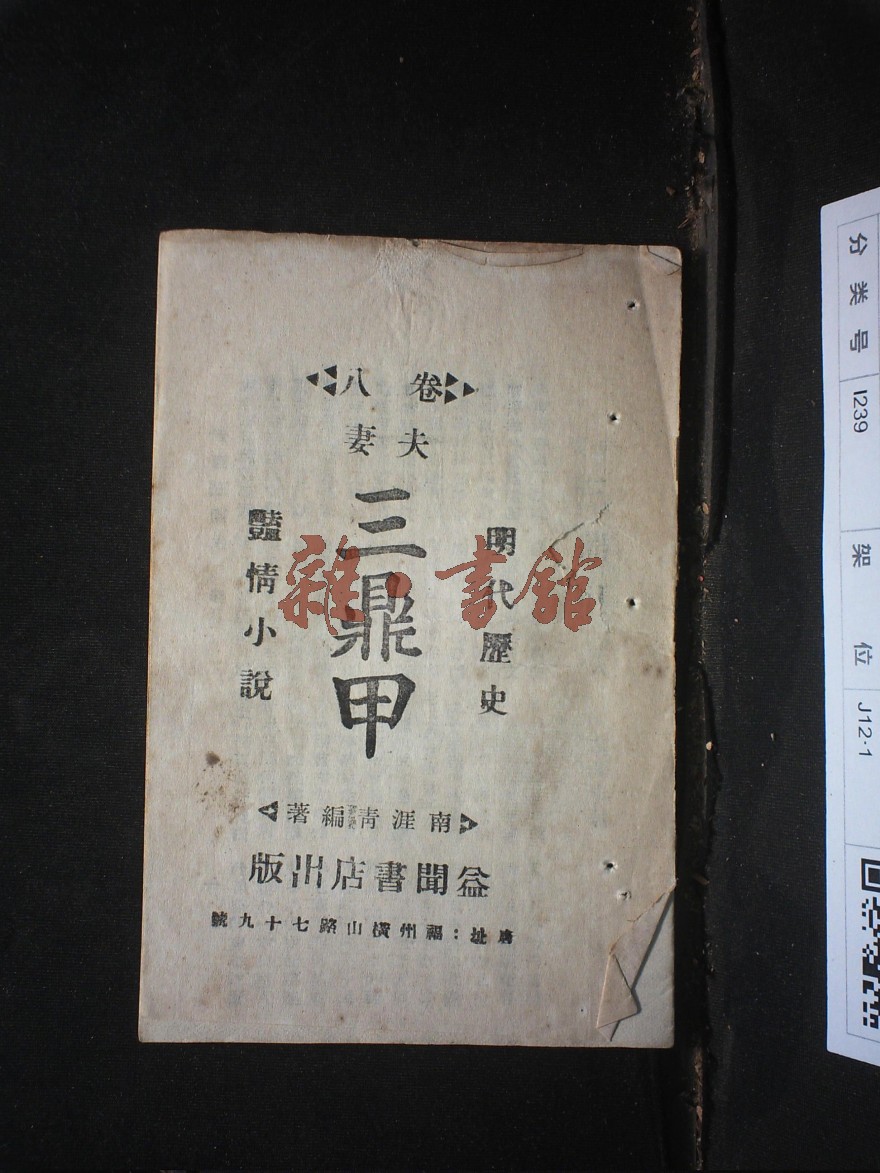 卷八
夫妻
明代歷史
三鼎甲
豔情小說
南涯青編著
益聞書店出版
址：福州橫山路七十九號
雜·書館
分类号 I239 架位 J12·1